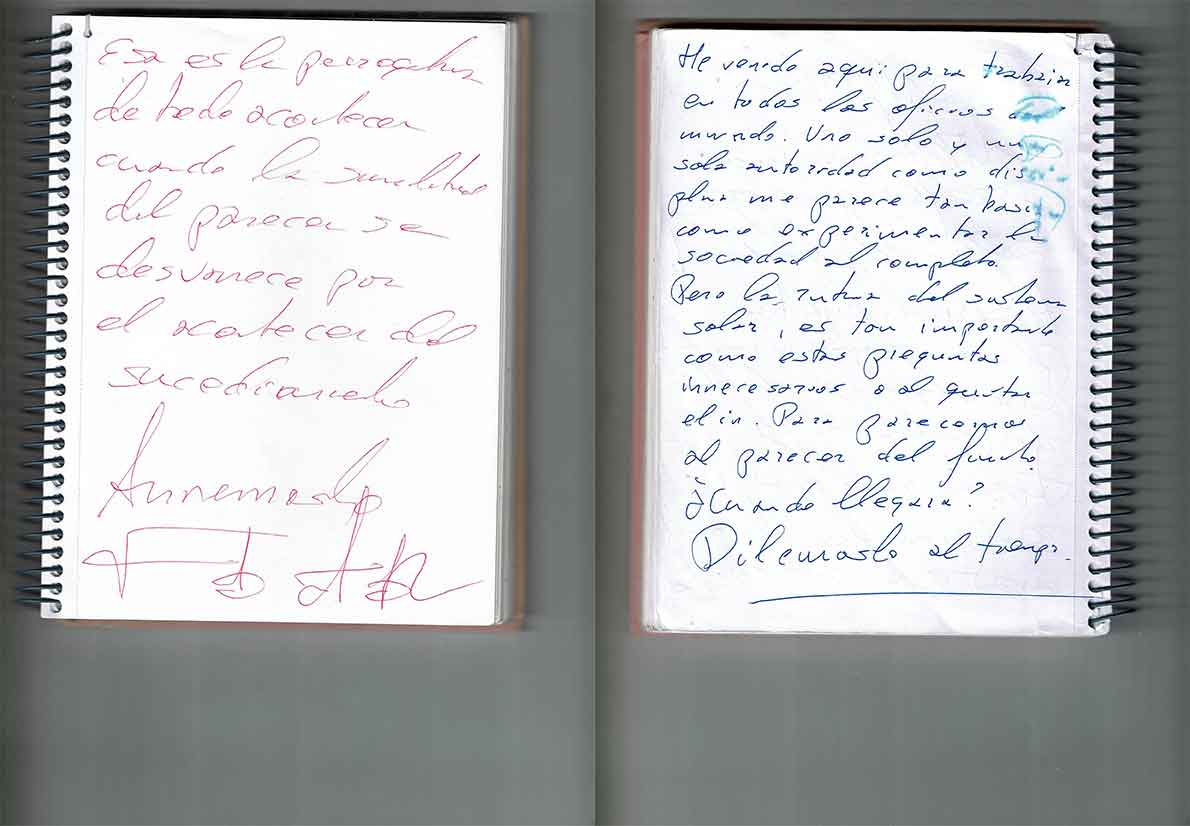 Esa es la prerrogativa
de todo acontecer
cuando la similitud
del parecer se
desvanece por
el acontecer del
sucediendo
He venido aquí para trabajar
en todos los oficios
mundo. Uno solo y un
sola autoridad como dis
plina me parece tan basi
como experimentar la
sociedad al completo.
Pero la rutina del sistema
solar, es tan importante
como estas preguntas
innecesarias o al quitar
el in. Para parecernos
al parecer del fruto.
¿Cuando llegara?
Dilemaslo al tiempo.